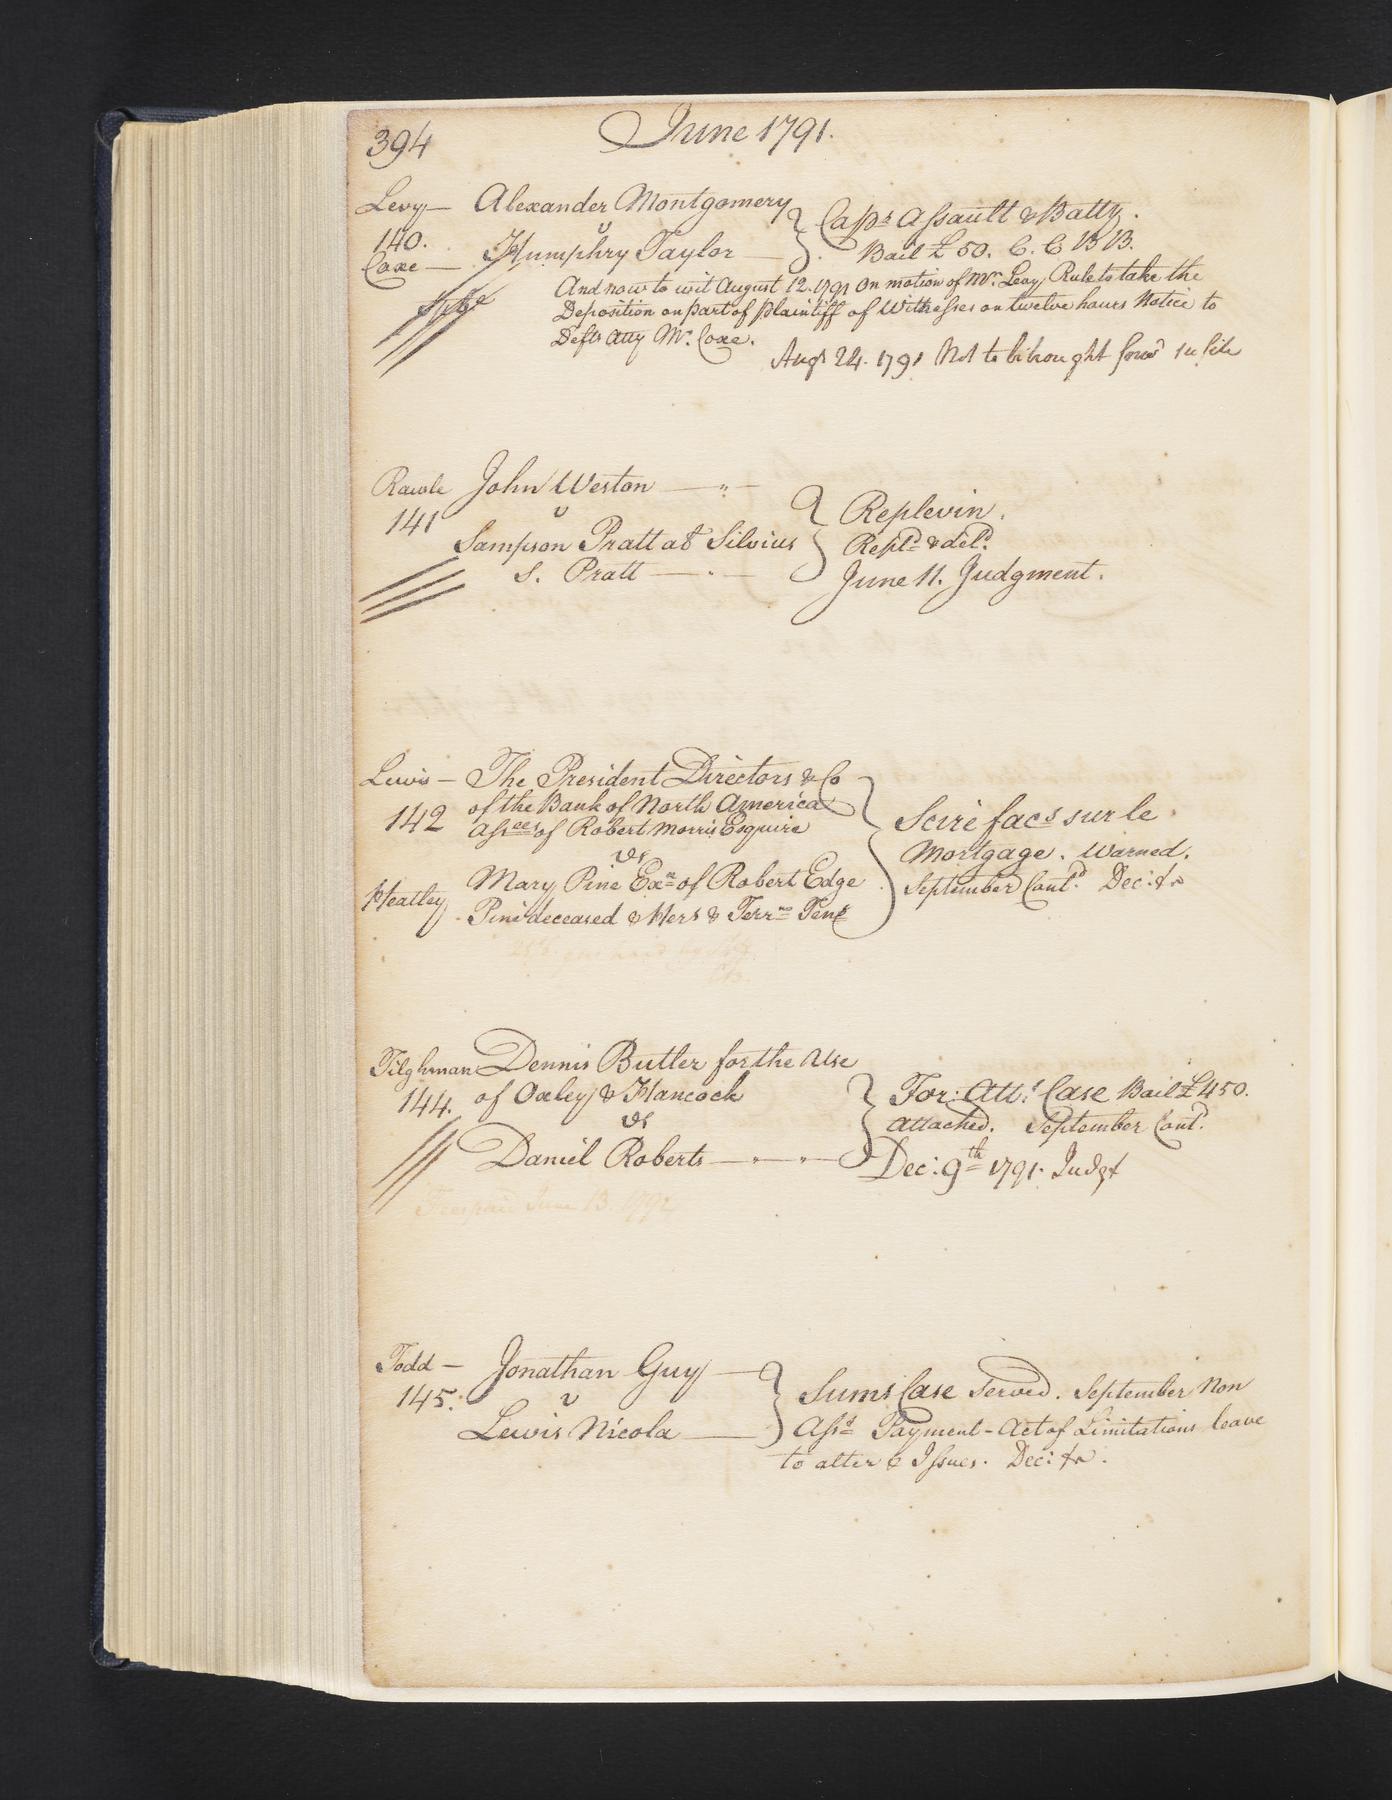 394 June 1791.
Levy — Alexander Montgomery
v
140. Humphry Taylor —
Coxe —
Caps Assault & Batty.
Bail £50. C. C B B.
And now to wit August 12. 1791 On motion of Mr. Levy Rule to take the
Deposition on part of plaintiff of Witnesses on twelve hours Notice to
Defts Atty Mr. Coxe.
Augt 24. 1791 Not to be brought forwd
Rawle John Weston
141 v
Sampson Pratt at Silvius
S. Pratt
Replevin.
Repld & deld.
June 11. Judgment.
Lewis — The President Directors & Co
142 of the Bank of North America
Assees of Robert Morris Esquire
vs
Mary Pine Exx of Robert Edge
Heatley - Pine deceased & Hers & Terre Tents
Scire facs sur le
Mortgage. Warned.
September Contd. Dec: &c
Tilghman Dennis Butler for the Use
144. of Oxley & Hancock
vs
Daniel Roberts
For: Att: Case Bail £450.
attached. September Contd.
Dec: 9th 1791. Judgt
Fees paid June 13. 1792
Todd — Jonathan Guy
145. v
Lewis Nicola
Sums Case Served. September Non
Asst Payment - Act of Limitations leave
to alter & Issues. Dec: &c.